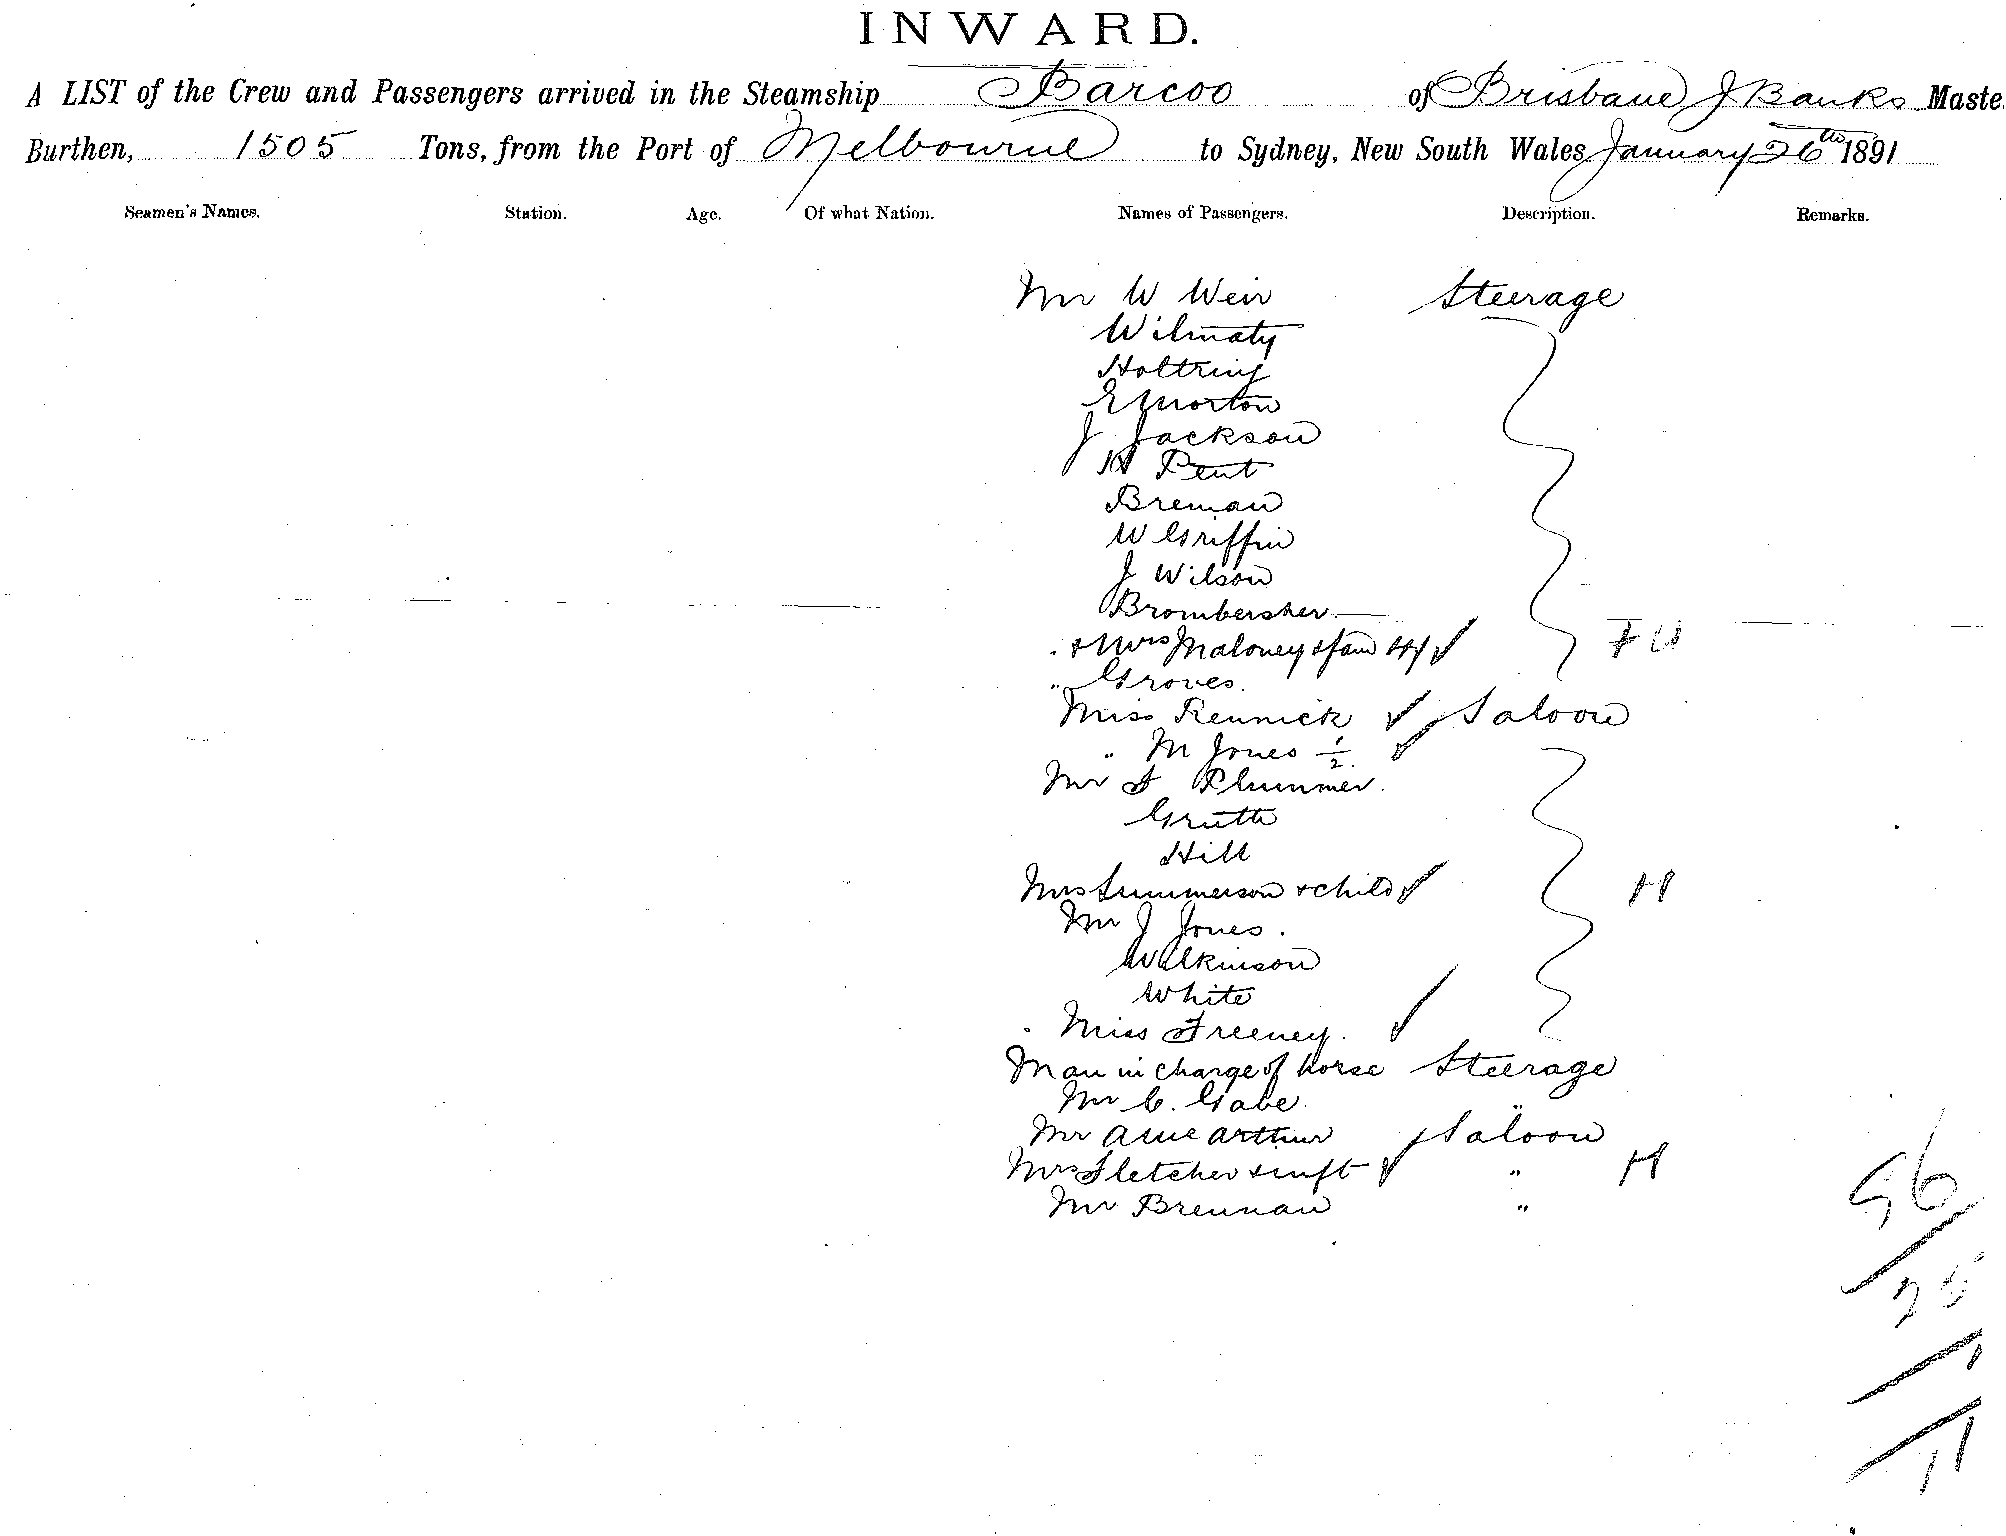 INWARD.
A LIST of the Crew and Passengers arrived in the Steamship Barcoo of Brisbane J Banks Maste
Burthen, 1505 Tons, from the Port of Melbourne to Sydney, New South Wales January 26th 1891
Seamen's Names. Station. Age. Of what Nation. Names of Passengers. Description. Remarks.
Mr W Weir Steerage
Wilmaty
Holtring
E Morton
J Jackson
H Pent
Breman
W Griffin
J Wilson
Brombersher
+ Mrs Maloney & fam 4
" Groves.
Miss Rennick Saloon
" M Jones 1/2
Mr F Plummer.
Gruth
Hill
Mrs Summerson + child H
Mr J Jones.
Wilkinson
White
Miss Freeney.
Man in charge of horse Steerage
Mr C. Gabe. "
Mr A McArthur Saloon
Mrs Fletcher + inft " H
Mr Brennan "
96
25
1
11